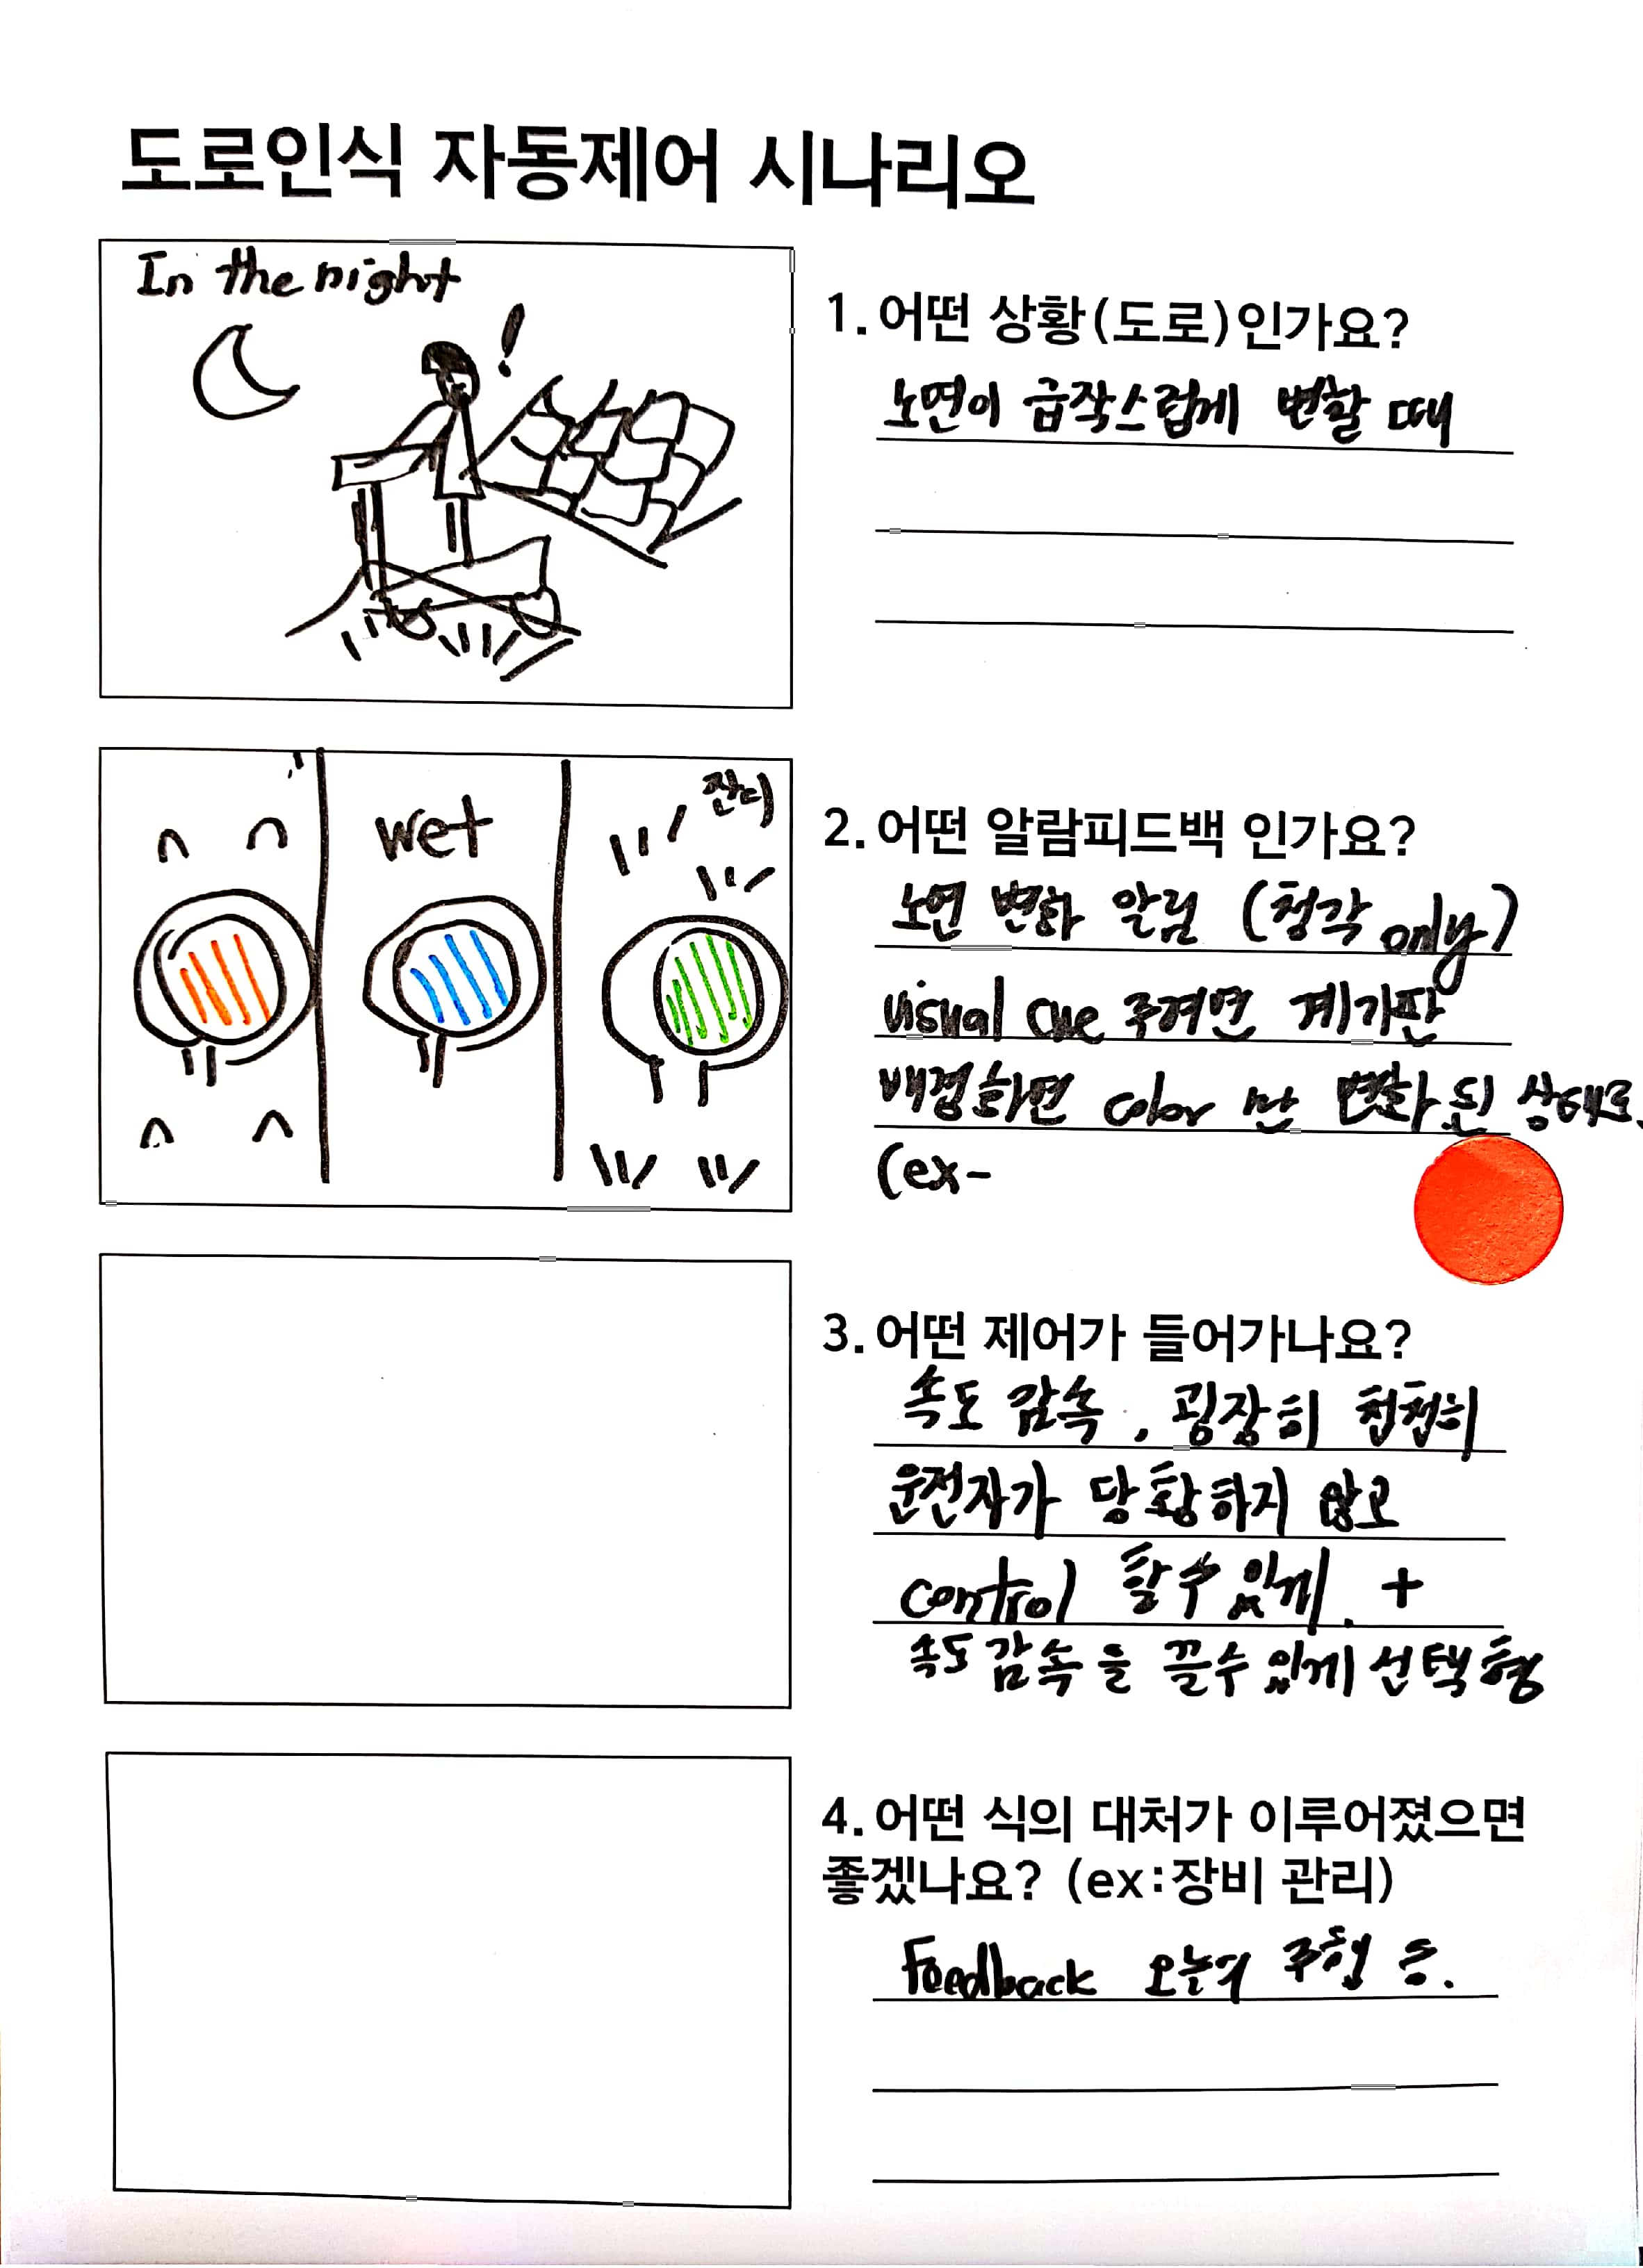 도로인식 자동제어 시나리오
In the night
!
1. 어떤 상황(도로)인가요?
노면이 급작스럽게 변할 때
wet
잔디
2. 어떤 알람피드백 인가요?
노면 변화 알림 (청각 only)
visual cue 주려면 계기판
배경화면 color 만 변화 된 상태로.
(ex-
3. 어떤 제어가 들어가나요?
속도 감속, 굉장히 천천히
운전자가 당황하지 않고
control 할 수 있게. +
속도 감속을 끌 수 있게 선택형
4. 어떤 식의 대처가 이루어졌으면
좋겠나요? (ex:장비 관리)
Feedback 오늘의 주행 등.